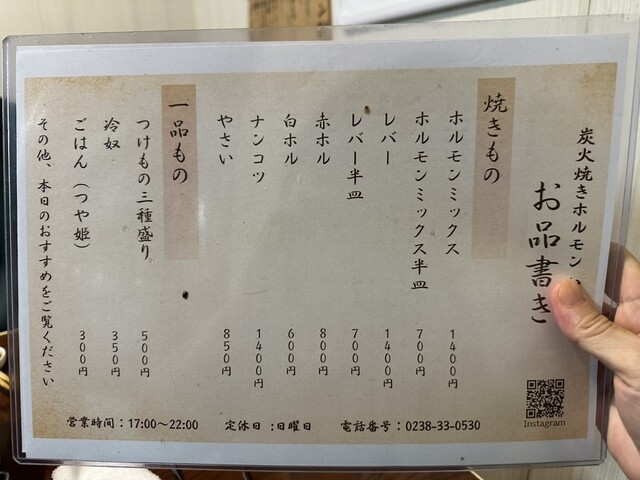 炭火焼きホルモン
お品書き
焼きもの
ホルモンミックス 1400円
ホルモンミックス半皿 700円
レバー 1400円
レバー半皿 700円
赤ホル 800円
白ホル 600円
ナンコツ 1400円
やさい 850円
一品もの
つけもの三種盛り 500円
冷奴 350円
ごはん(つや姫) 300円
その他、本日のおすすめをご覧ください
営業時間：17:00〜22:00 定休日：日曜日 電話番号：0238-33-0530
Instagram